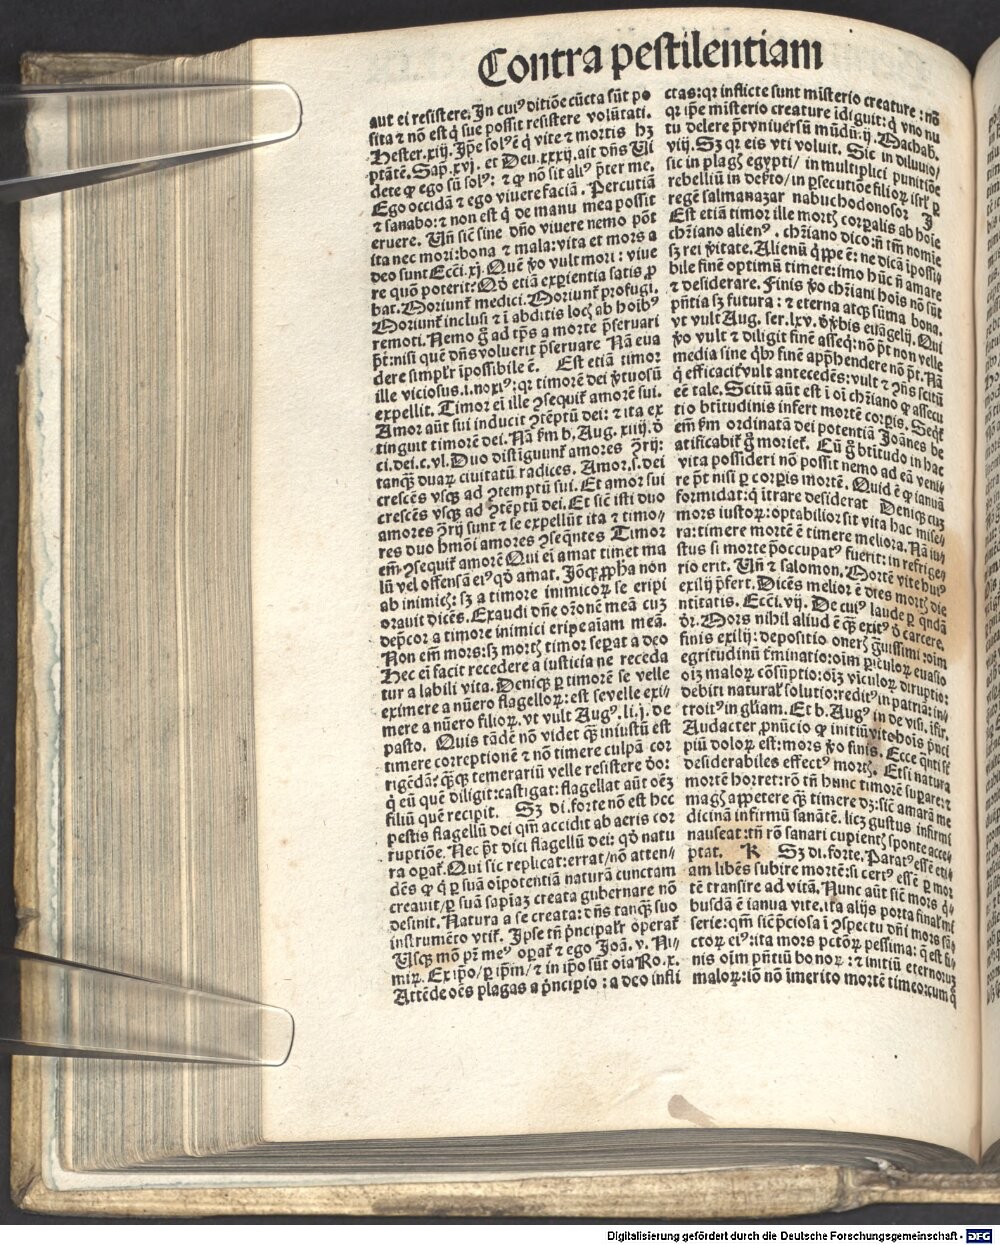 Contra pestilentiam
aut ei resistere. In cuiꝰ ditiōe cūcta sūt po
sita ⁊ nō est q̇ sue possit resistere volūtati.
Hester. xiij. Ip̄e solꝰ ē q̇ vite ⁊ mortis hꝫ
p̄tātē. Sap̄. xvj. et Deu. xxxij. ait dn̄s Ui
dete ꝙ ego sū solꝰ: ⁊ ꝙ nō sit aliꝰ p̄ter me.
Ego occidā ⁊ ego viuere faciā. Percutiā
⁊ sanabo: ⁊ non est q̇ de manu mea possit
eruere. Uñ sic̄ sine dn̄o viuere nemo pōt
ita nec mori: bona ⁊ mala: vita et mors a
deo sunt Ecc̄i. xj. Quē ꝟo vult mori: viue
re quō poterit? Qd̄ etiā exp̱ientia satis ꝓ
bat. Moriunt̄ medici. Moriunt̄ profugi.
Moriunt̄ inclusi ⁊ ī abditis locꝭ ab hoībꝰ
remoti. Nemo ḡ ad tp̄s a morte p̄seruari
p̄t: nisi quē dn̄s voluerit p̄seruare Nā eua
dere simpl̄r īpossibile ē. Est etiā timor
ille viciosus. i. noxiꝰ: qr timorē dei ꝟtuosū
expellit. Timor ei ille ꝯsequit̄ amorē sui.
Amor aūt sui inducit ꝯtēptū dei: ⁊ ita ex
tinguit timorē dei. Nā ẜm b. Aug. xiiij. d̄
ci. dei. c. vl. Duo distīguūt̄ amores ꝯrij:
tanqꝫ duaꝝ ciuitatū radices. Amor. s. dei
crescēs vsqꝫ ad ꝯtemptū sui. Et amor sui
crescēs vsqꝫ ad ꝯtēptū dei. Et sic̄ isti duo
amores ꝯrij sunt ⁊ se expellūt ita ⁊ timo-
res duo hmōi amores ꝯseq̄ntes Timor
em̄ ꝯsequit̄ amorē Qui ei amat timet ma
lū vel offensā eiꝰ qd̄ amat. Jōqꝫ ꝓpha non
ab inimicꝭ: sꝫ a timore inimicoꝝ se eripi
orauit dicēs. Exaudi dn̄e or̄onē meā cuꝫ
dep̄cor a timore inimici eripe aīam meā.
Non em̄ mors: sꝫ mortꝭ timor sep̱at a deo
Hec ei facit recedere a iusticia ne receda
tur a labili vita. Deniqꝫ ꝑ timorē se velle
eximere a nūero flagelloꝝ: est se velle exi-
mere a nūero filioꝝ. vt vult Augꝰ. li. j. de
pasto. Quis tādē nō videt qꝫ iniustū est
timere correptionē ⁊ nō timere culpā cor
rigēdā? qꝫqꝫ temerariū velle resistere d̄o:
q̇ eū quē diligit: castigat: flagellat aūt oēꝫ
filiū quē recipit. Sꝫ di. forte nō est hec
pestis flagellū dei qm̄ accidit ab aeris cor
ruptiōe. Nec p̄t dici flagellū dei: qd̄ natu
ra opat̄. Qui sic replicat: errat / nō atten-
dēs ꝙ q̇ ꝑ suā oīpotentiā naturā cunctam
creauit / ꝑ suā sapīaꝫ creata gubernare nō
desinit. Natura a se creata: dn̄s tanqꝫ suo
instrumēto vtit̄. Ip̄se tn̄ p̄ncipalr̄ operat̄
Usqꝫ mō pr̄ meꝰ opat̄ ⁊ ego Joā. v. Ni-
miꝝ. Ex ip̄o / ꝑ ip̄m / ⁊ in ip̄o sūt oīa Ro. x.
Attēde oēs plagas a p̄ncipio: a deo infli
ctas: qr inflicte sunt misterio creature: nō
qr ip̄e misterio creature īdiguit: q̇ vno nu
tu delere p̄t vniuersū mūdū. ij. Machab.
viij. Sꝫ qr eis vti voluit. Sic in diluuio /
sic in plagꝭ egypti / in multiplici punitiōe
rebelliū in dep̄to / in ꝑsecutiōe filioꝝ isrl̄ ꝑ
regē salmanazar nabuchodonosor J
Est etiā timor ille mortꝭ corp̱alis ab hoīe
chr̄iano alienꝰ. chr̄iano dico: n̄ tm̄ nomīe
sꝫ rei ꝟitate. Alienū q̇ppe ē: ne dicā īpossi-
bile finē optimū timere: imo hūc n̄ amare
⁊ desiderare. Finis ꝟo chr̄iani hoīs nō sūt
p̄ntia sꝫ futura: ⁊ eterna atqꝫ sūma bona.
vt vult Aug. ser. lxv. d̄ ꝟbis euāgelij. Qui
ꝟo vult ⁊ diligit finē asseq̇: nō p̄t non velle
media sine qb̄ finē app̄hendere nō p̄t. Nā
q̇ efficacit̄ vult antecedēs: vult ⁊ ꝯn̄s scitū
eē tale. Scitū aūt est ī oī chr̄iano ꝙ assecu
tio btitudinis infert mortē corꝑis. Seq̇t̄
em̄ ẜm ordinatā dei potentiā Joānes be
atificabit̄ ḡ moriet̄. Cū ḡ btitudo in hac
vita possideri nō possit nemo ad eā veni-
re p̄t nisi ꝑ corꝑis mortē. Quid ē ꝙ ianuā
formidat: q̇ ītrare desiderat Deniqꝫ cuꝫ
mors iustoꝝ: optabilior sit vita hac mise-
ra: timere mortē ē timere meliora. Nā iu-
stus si morte p̄occupatꝰ fuerit: in refrige-
rio erit. Uñ ⁊ salomon. Mortē vite huiꝰ
exilij p̄fert. Dicēs melior ē dies mortꝭ die
ntitatis. Ecc̄i. vij. De cuiꝰ laude ꝑ qndā
d̄r. Mors nihil aliud ē qꝫ exitꝰ d̄ carcere.
finis exilij: depositio onerꝭ ḡuissimi: oīm
egritudinū t̄minatio: oīm ꝑiculoꝝ euasio
oīꝫ maloꝝ cōsūptio: oīꝫ viculoꝝ diruptio:
debiti natural̄ solutio: reditꝰ in patriā: in-
troitꝰ in gl̄iam. Et b. Augꝰ in de visi. ifir.
Audacter ꝓnūcio ꝙ initiū vite hoīs p̄nci
piū doloꝝ est: mors ꝟo finis. Ecce qnti st̄
desiderabiles effectꝰ mortꝭ. Etsi natura
mortē horret: rō tn̄ hunc timorē supare: ⁊
magꝭ appetere qꝫ timere dꝫ: sic̄ amarā me
dicinā infirmū sanātē. licꝫ gustus infirmi
nauseat: tn̄ rō sanari cupientꝭ sponte acce-
ptat. K Sꝫ di. forte. Paratꝰ essē eti-
am libēs subire mortē: si certꝰ essē ꝑ mor
tē transire ad vitā. Nunc aūt sic̄ mors q̇-
busdā ē ianua vite. ita alijs porta final̄ mi
serie: qm̄ sic̄ p̄ciosa ī ꝯspectu dn̄i mors sā-
ctoꝝ eiꝰ: ita mors pctōꝝ pessima: q̄ est fi-
nis oīm p̄ntiū bonoꝝ: ⁊ initiū eternoruꝫ
maloꝝ: iō nō īmerito mortē timeo: cum q̇
Digitalisierung gefördert durch die Deutsche Forschungsgemeinschaft - DFG